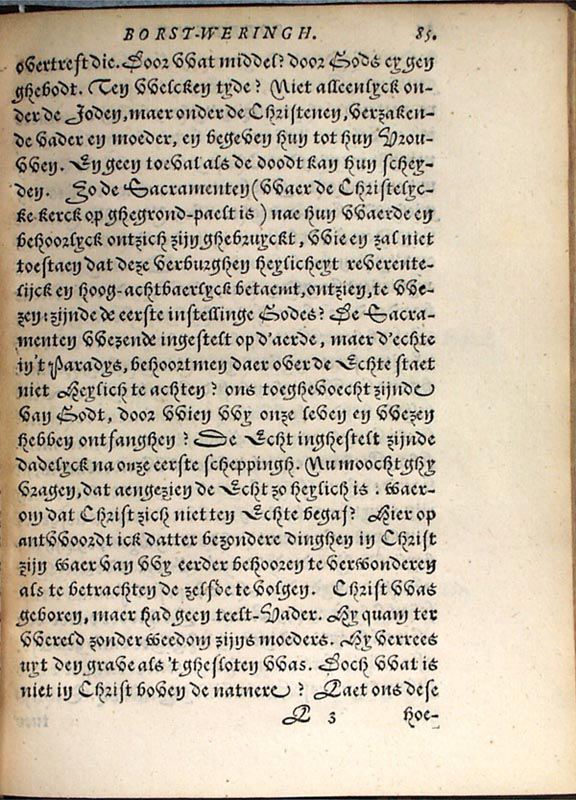 BORST-WERINGH. 85.
overtreft die. Door VVat middel? door Gods eygen
ghebodt. Ten VVelcken tyde? Niet alleenlyck on-
der de Joden, maer onder de Christenen, verzaken-
de vader en moeder, en begeven hun tot hun Vrou-
VVen. En geen toeval als de doodt kan hun schey-
den. Zo de Sacramenten (VVaer de Christelyc-
ke kerck op ghegrond-paelt is) nae hun VVaerde en
behoorlyck ontzich zijn ghebruyckt, VVie en zal niet
toestaen dat deze verburghen heylicheyt reverente-
lijck en hoog-achtbaerlyck betaemt, ontzien, te VVe-
zen: zijnde de eerste instellinge Godes? De Sacra-
menten VVezende ingestelt op d'aerde, maer d'echte
in't Paradys, behoort men daer over de Echte staet
niet Heylich te achten? ons toeghevoecht zijnde
van Godt, door VVien VVy onze leven en VVezen
hebben ontfanghen? De Echt inghestelt zijnde
dadelyck na onze eerste scheppingh. Nu moocht ghy
vragen, dat aengezien de Echt zo heylich is. waer-
om dat Christ zich niet ten Echte begaf? Hier op
antVVoordt ick datter bezondere dinghen in Christ
zijn waer van VVy eerder behooren te verwonderen
als te betrachten de zelfde te volgen. Christ VVas
geboren, maer had geen teelt-Vader. Hy quam ter
VVereld zonder weedom zijns moeders. Hy verrees
uyt den grave als 't ghesloten VVas. Doch VVat is
niet in Christ boven de natuere? Laet ons dese
L 3 hoe-